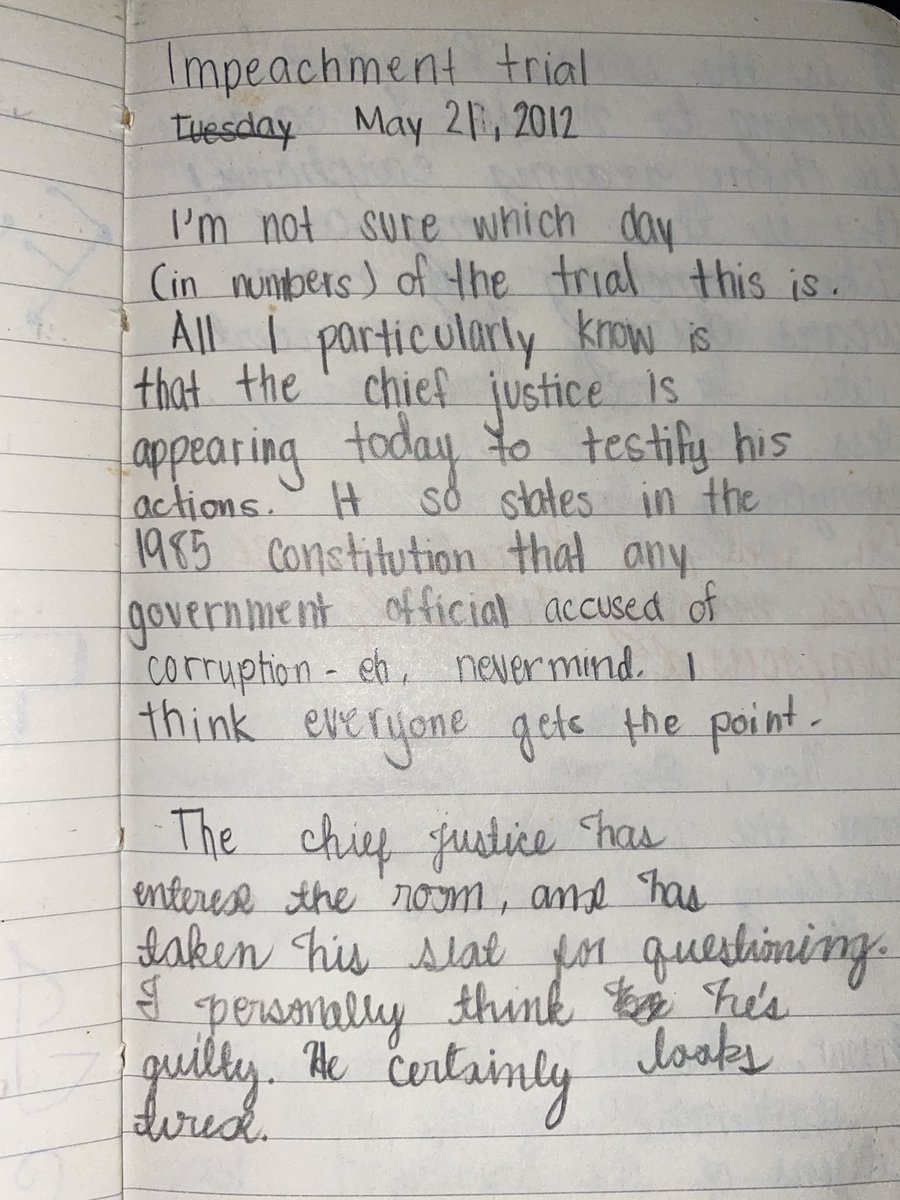 Impeachment trial
Tuesday May 21, 2012
I'm not sure which day
(in numbers) of the trial this is.
All I particularly know is
that the chief justice is
appearing today to testify his
actions. It so states in the
1985 constitution that any
government official accused of
corruption - eh, nevermind. I
think everyone gets the point.
The chief justice has
entered the room, and has
taken his seat for questioning.
I personally think he's
guilty. He certainly looks
tired.